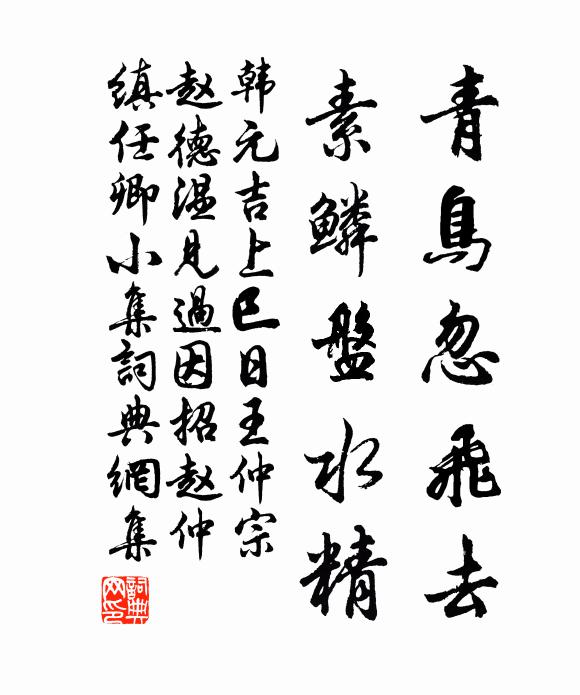 青鳥忽飛去
素鱗盤水精
韩元吉上巳日王仲宗
赵德温見過因招赵仲
缜任卿小集詞典網集
詞典网印